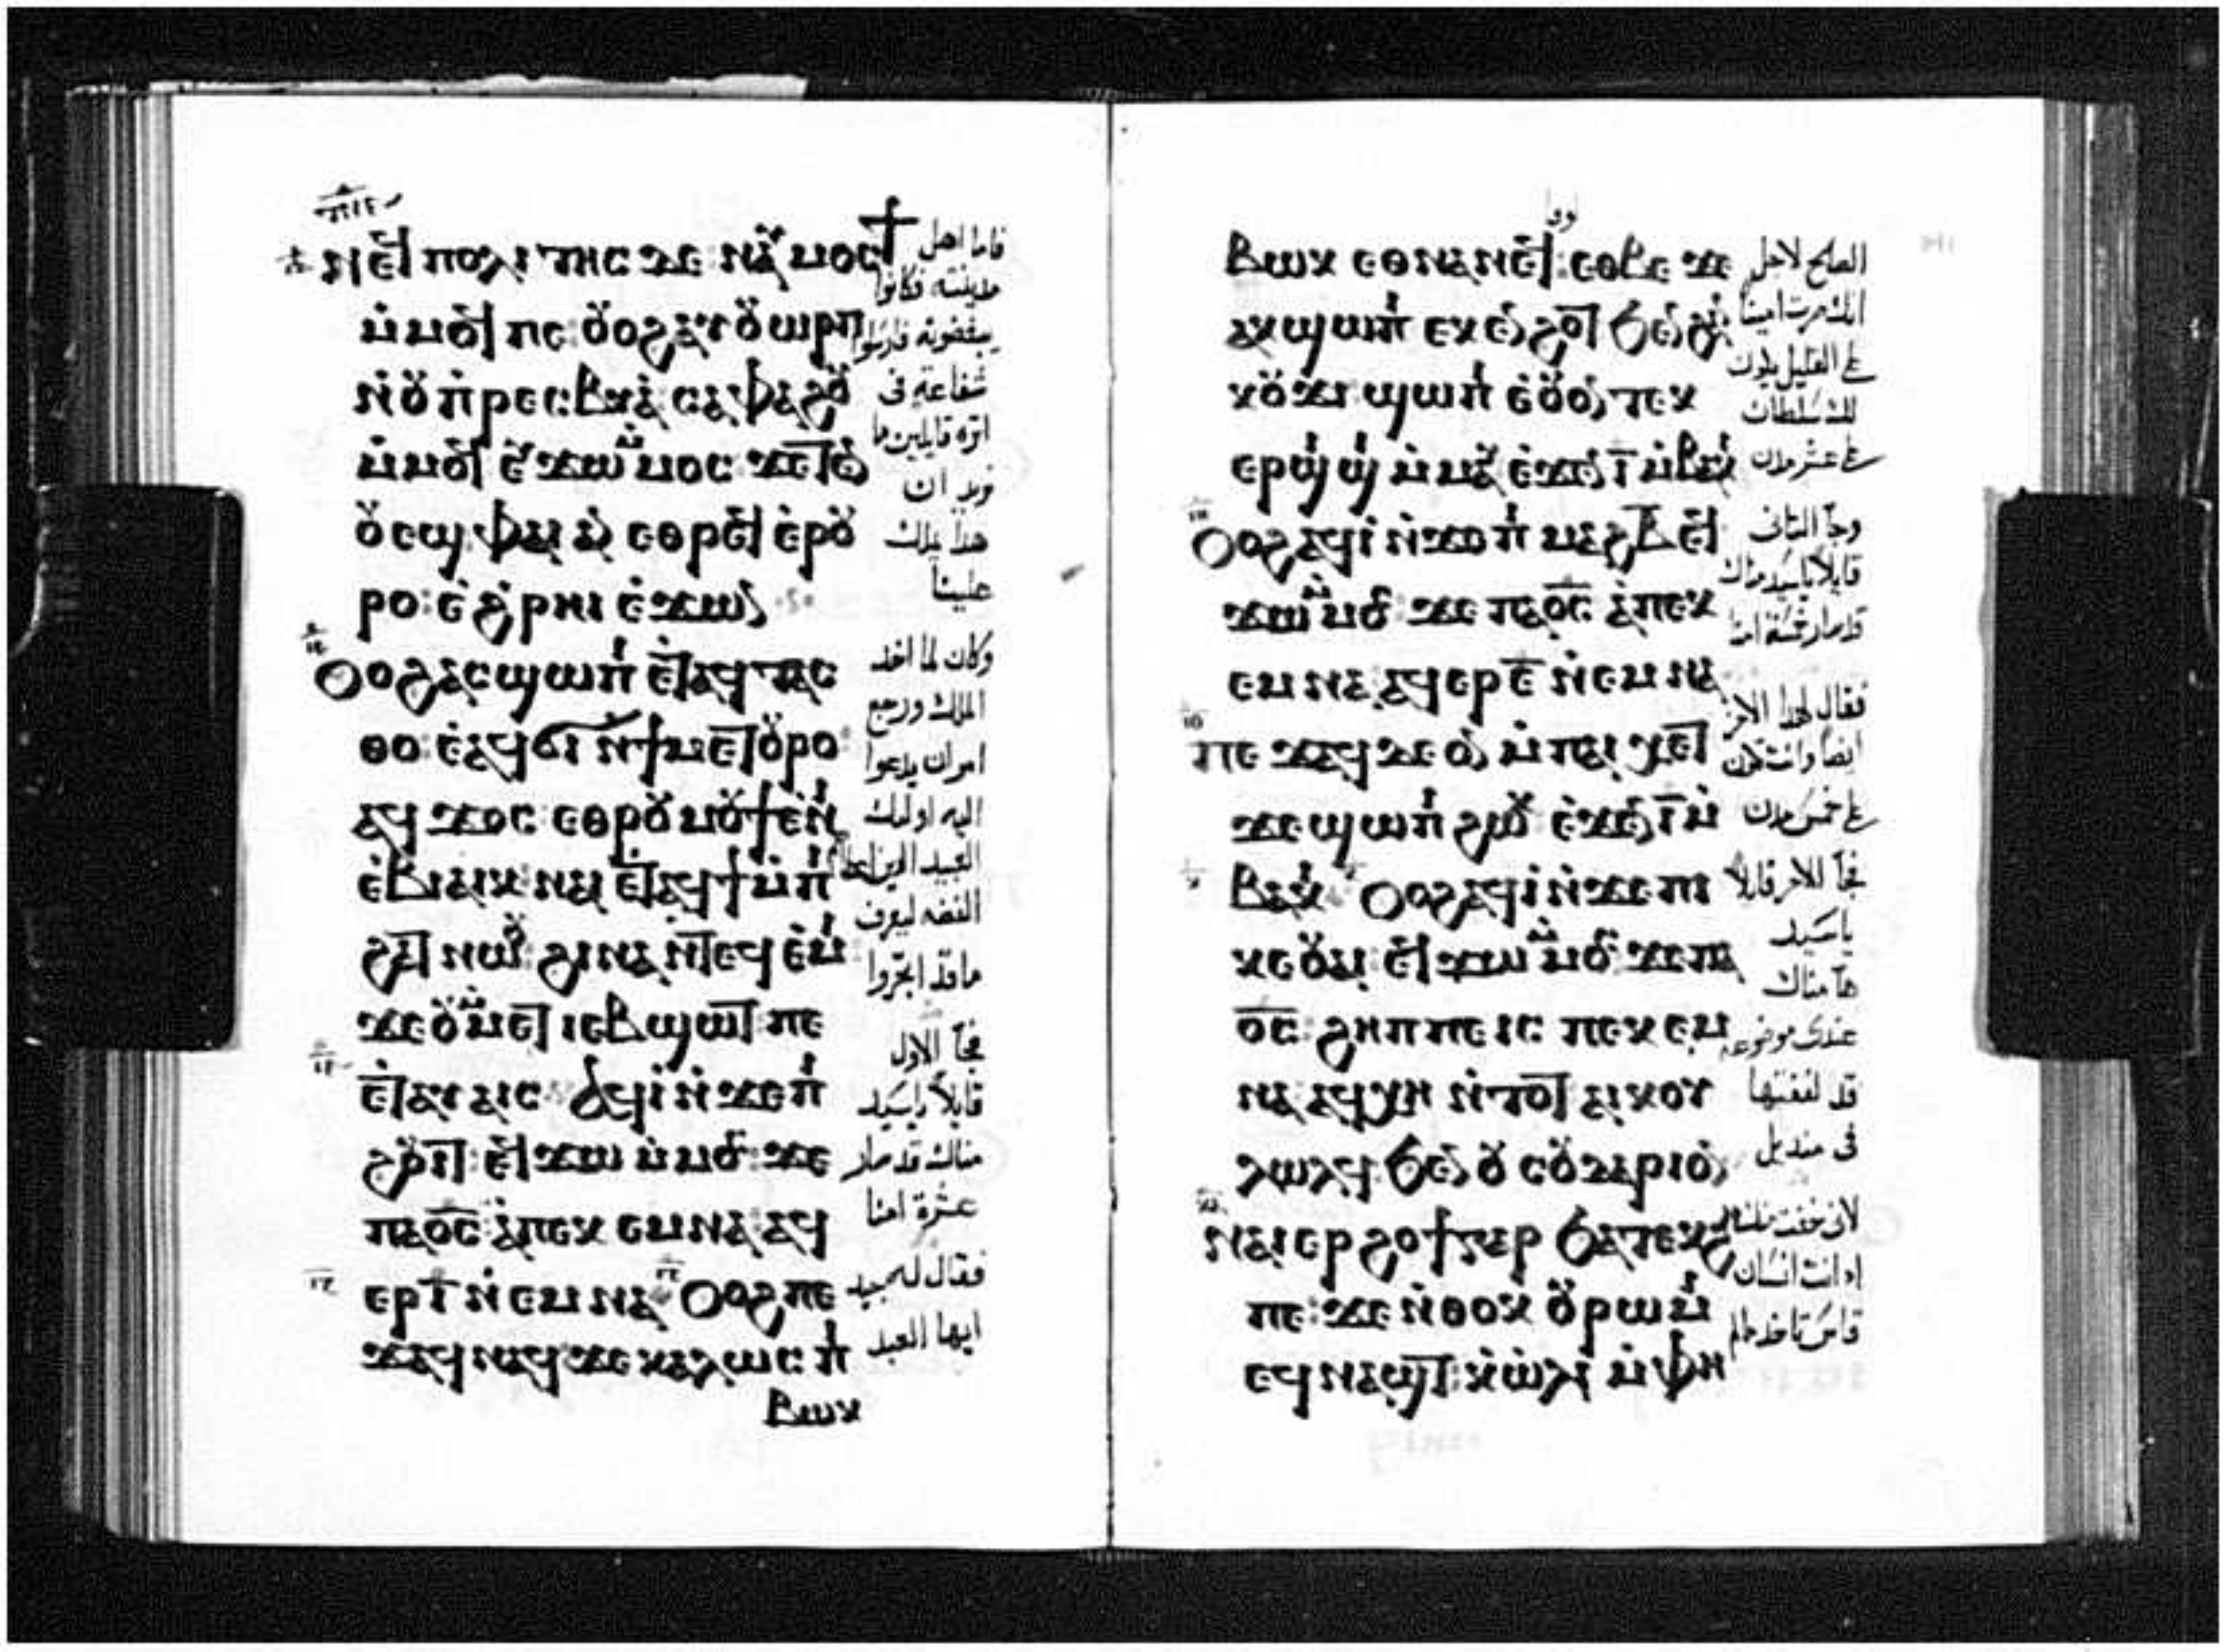 ⲛⲉϥ ⲡⲟⲗⲓⲧⲏⲥ ⲇⲉ ⲛⲁⲩ ⲙⲟⲥϯ
ⲙ̀ⲙⲟϥ ⲡⲉ ⲟⲩⲟϩ ⲁⲩⲟⲩⲱⲣⲡ
ⲛ̀ⲟⲩⲡ̀ⲣⲉⲥⲃⲓⲁ̀ ⲥⲁⲫⲁϩⲟⲩ
ⲙ̀ⲙⲟϥ ⲉⲩϫⲱ ⲙ̀ⲙⲟⲥ ϫⲉ ⲧⲉⲛ
ⲟⲩⲉϣ ⲫⲁⲓ ⲁⲛ ⲉⲑⲣⲉϥ ⲉⲣⲟⲩ
ⲣⲟ ⲉ̀ϩ̀ⲣⲏⲓ ⲉ̀ϫⲱⲛ
ⲟⲩⲟϩ ⲁⲥϣⲱⲡⲓ ⲉ̀ⲧⲁϥ ⲧⲁⲥ
ⲑⲟ ⲉ̀ⲁϥϭⲓ ⲛ̀ϯⲙⲉⲧⲟⲩⲣⲟ
ⲁϥϫⲟⲥ ⲉⲑⲣⲟⲩⲙⲟⲩϯ ⲉ̀ⲛⲓ
ⲉ̀ⲃⲓⲁⲓⲕ ⲛⲁⲓ ⲉ̀ⲧⲁϥϯ ⲙ̀ⲡⲓ
ϩⲁⲧ ⲛⲱⲟⲩ ϩⲓⲛⲁ ⲛ̀ⲧⲉϥⲉ̀ⲙⲓ
ϫⲉ ⲟⲩ ⲙ̀ⲙⲉⲧⲓⲉⲃϣⲱⲧ ⲡⲉ
ⲉ̀ⲧⲁⲩ ⲁⲓⲥ ⲁϥⲓ̀ ⲛ̀ϫⲉ ⲡⲓ
ϩⲟⲩⲓⲧ ⲉϥϫⲱ ⲙ̀ⲙⲟⲥ ϫⲉ
ⲡⲁⲟ̅ⲥ̅ ⲁ̀ⲡⲉⲕ ⲉⲙⲛⲁ ⲁϥ
ⲉⲣ ⲓ̅ ⲛ̀ⲉⲙⲛⲁ ⲟⲩⲟϩ ⲡⲉ
ϫⲁϥ ⲛⲁϥ ϫⲉ ⲕⲁⲗⲱⲥ ⲡⲓ
ⲃⲱⲕ
فاما اهل
مدينته فكانوا
يبغضونه فارسلوا
شفاعة في
اثره قايلين ما
نريد ان
هذا يملك
علينا
وكان لما اخذ
الملك ورجع
امر ان يدعوا
اليه اوليك
العبيد الذين اعطاهم
الفضه ليعرف
ما قد اتجروا
فجآ الاول
قايلاً ياسيد
مناك قد صار
عشرة امنا
فقال له جيد
ايها العبد
ⲃⲱⲕ ⲉⲑⲛⲁⲛⲉϥ ⲉⲑⲃⲉ ϫⲉ
ⲁⲕϣⲱⲡⲓ ⲉⲕⲉⲛϩⲟⲧ ϧⲉⲛ ϩⲁⲛ
ⲕⲟⲩϫⲓ ϣⲱⲡⲓ ⲉ̀ⲟⲩⲟⲛⲧⲉⲕ
ⲉⲣϣⲓϣⲓ ⲙ̀ⲙⲁⲩ ⲉ̀ϫⲉⲛ ⲓ̅ ⲙ̀ⲃⲁⲕⲓ
ⲟⲩⲟϩ ⲁϥⲓ̀ ⲛ̀ϫⲉ ⲡⲓⲙⲁϩ ⲃ̅ ⲉϥ
ϫⲱ ⲙ̀ⲙⲟⲥ ϫⲉ ⲡⲁⲟ̅ⲥ̅ ⲁ̀ⲡⲉⲕ
ⲉⲙⲛⲁ ⲁϥⲉⲣ ⲉ̅ ⲛ̀ⲉⲙⲛⲁ
ⲡⲉϫⲁϥ ϫⲉ ⲟⲛ ⲙ̀ⲡⲁⲓⲭⲉⲧ
ϫⲉ ϣⲱⲡⲓ ϩⲱⲕ ⲉ̀ϫⲉⲛ ⲉ̅ ⲙ̀
ⲃⲁⲕⲓ ⲟⲩⲟϩ ⲁϥⲓ̀ ⲛ̀ϫⲉ ⲡⲓ
ⲕⲉⲟⲩⲁⲓ ⲉϥϫⲱ ⲙ̀ⲙⲟⲥ ϫⲉ ⲡⲁ
ⲟ̅ⲥ̅ ϩⲏⲡⲡⲉ ⲓⲥ ⲡⲉⲕ ⲉⲙ
ⲛⲁ ⲁϥⲭⲏ ⲛ̀ⲧⲟⲧ ⲁⲓⲕⲟⲩ
ⲗⲱⲗϥ ϧⲉⲛ ⲟⲩⲥⲟⲩⲇⲁⲣⲓⲟⲛ
ⲛⲁⲓⲉⲣϩⲟϯ ⲅⲁⲣ ϧⲁⲧⲉⲕϩⲏ
ⲡⲉ ϫⲉ ⲛ̀ⲑⲟⲕ ⲟⲩⲣⲱⲙⲓ
ⲉϥⲛⲁϣⲧ ⲕ̀ⲱ̀ⲗⲓ ⲙ̀ⲫⲏ
الصالح لاجل
انك صرت امينا
على القليل يكون
لك سلطان
على عشر مدن
وجآ الثاني
قايلاً ياسيد مناك
قد صار خمسة امنا
فقال لهذا الاخر
ايضا وانت تكون
على خمس مدن
فجآ الاخر قايلاً
ياسيد
هآ مناك
عندي موضوعه
قد لففتها
في منديل
لاني خفت منك
اذ انت انسان
قاس تاخذ مالم